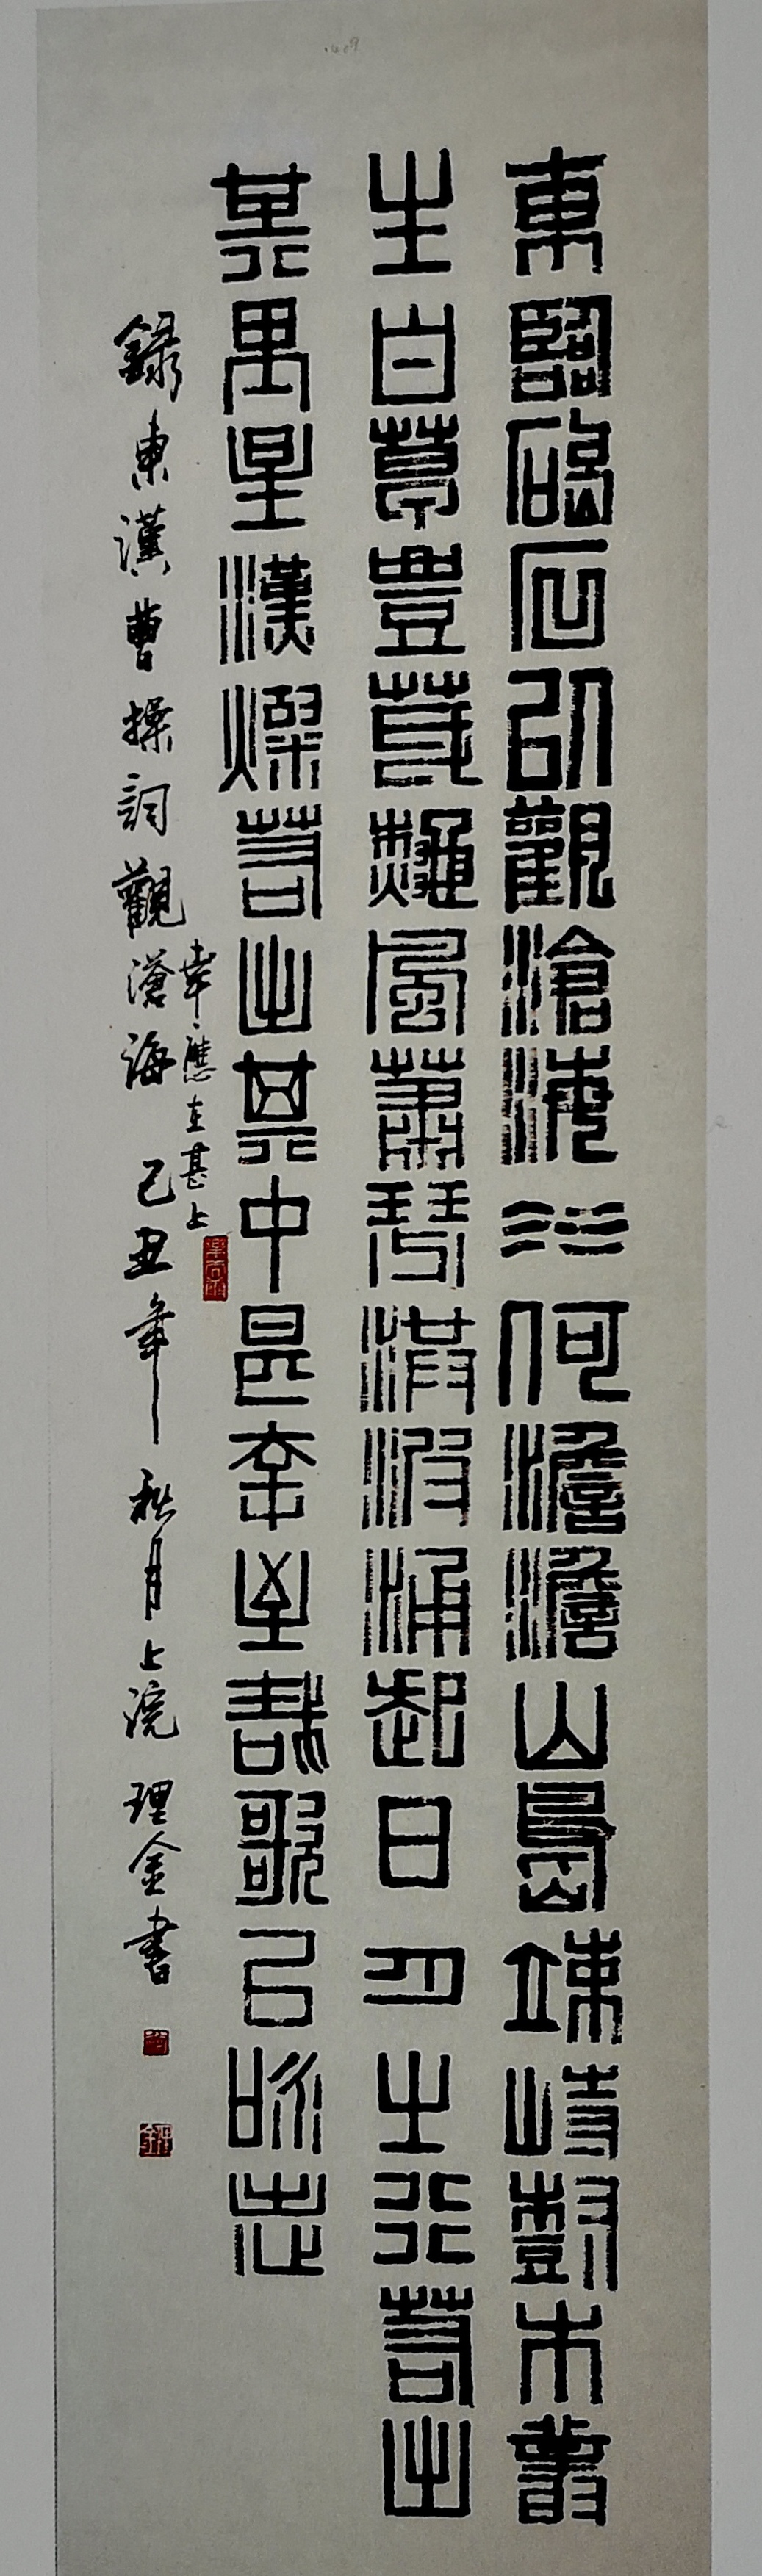 東臨碣石以觀滄海水何澹澹山島竦峙樹木叢
生百草豐茂龝風蕭瑟洪波涌起日月之行若出
其星漢燦若出其中甚幸至哉歌以詠志
幸應在甚上
錄東漢曹操詞觀滄海 己丑年秋月上浣 理金書